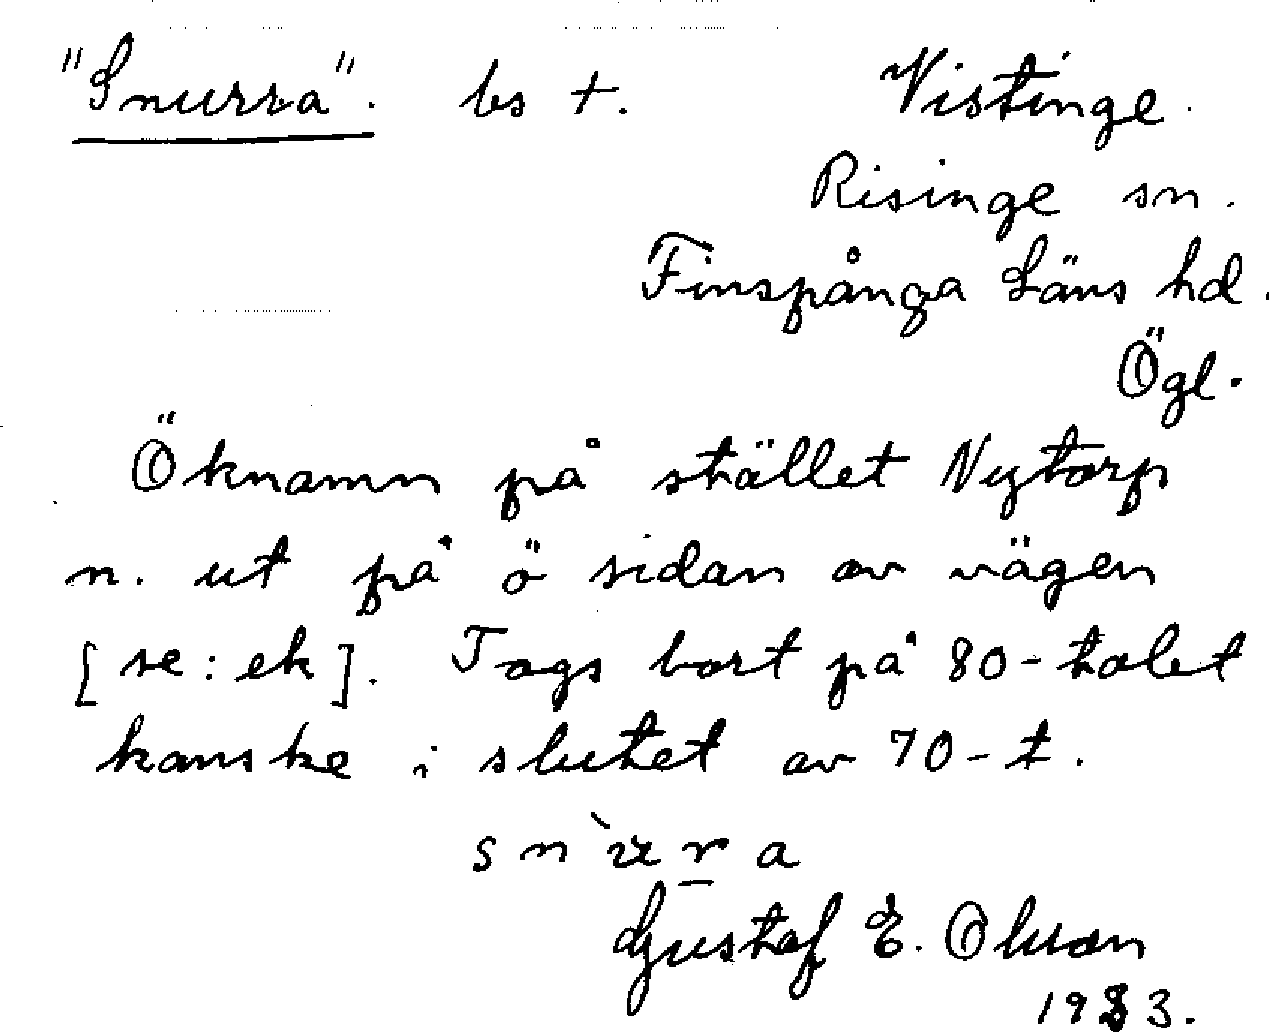 "Snurra". bs +. Vistinge.
Risinge sn.
Finspånga Läns hd.
Ögl.
Öknamn på stället Nytorp
n. ut på ö sidan av vägen
[se: ek]. Togs bort på 80-talet
kanske i slutet av 70-t.
Gustaf E. Olsson